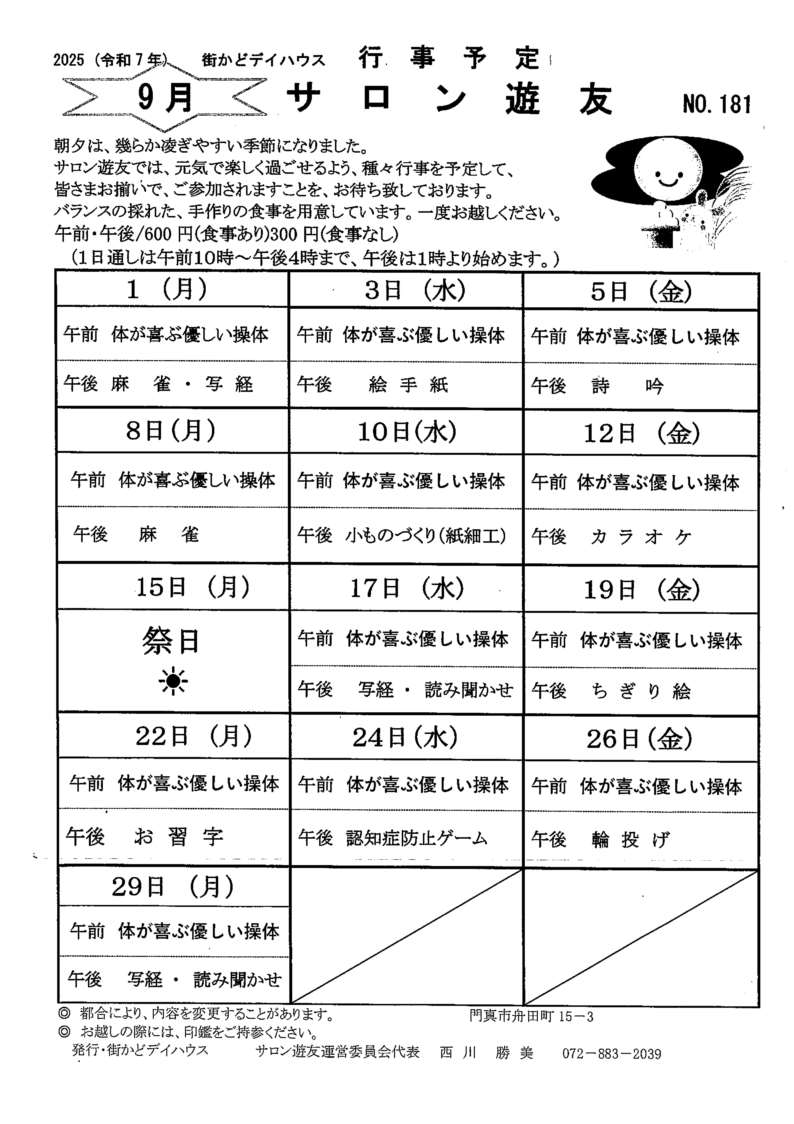 2025（令和７年） 街かどデイハウス 行 事 予 定
9月 サ ロ ン 遊 友 NO.181
朝夕は、幾らか凌ぎやすい季節になりました。
サロン遊友では、元気で楽しく過ごせるよう、種々行事を予定して、
皆さまお揃いで、ご参加されますことを、お待ち致しております。
バランスの採れた、手作りの食事を用意しています。一度お越しください。
午前・午後/600 円(食事あり)300 円(食事なし)
（１日通しは午前１０時～午後４時まで、午後は１時より始めます。）
1 （月） 3日 （水） 5日 （金）
午前 体が喜ぶ優しい操体 午前 体が喜ぶ優しい操体 午前 体が喜ぶ優しい操体
午後 麻 雀 ・ 写 経 午後 絵 手 紙 午後 詩 吟
8日（月） 10日(水) 12日 （金）
午前 体が喜ぶ優しい操体 午前 体が喜ぶ優しい操体 午前 体が喜ぶ優しい操体
午後 麻 雀 午後 小ものづくり（紙細工） 午後 カ ラ オ ケ
15日 （月） 17日 （水） 19日 （金）
祭日 午前 体が喜ぶ優しい操体 午前 体が喜ぶ優しい操体
午後 写経 ・ 読み聞かせ 午後 ち ぎ り 絵
22日 （月） 24日（水） 26日（金）
午前 体が喜ぶ優しい操体 午前 体が喜ぶ優しい操体 午前 体が喜ぶ優しい操体
午後 お 習 字 午後 認知症防止ゲーム 午後 輪 投 げ
29日 （月）
午前 体が喜ぶ優しい操体
午後 写経 ・ 読み聞かせ
◎ 都合により、内容を変更することがあります。 門真市舟田町 15－3
◎ お越しの際には、印鑑をご持参ください。
発行・街かどデイハウス サロン遊友運営委員会代表 西 川 勝 美 072－883－2039